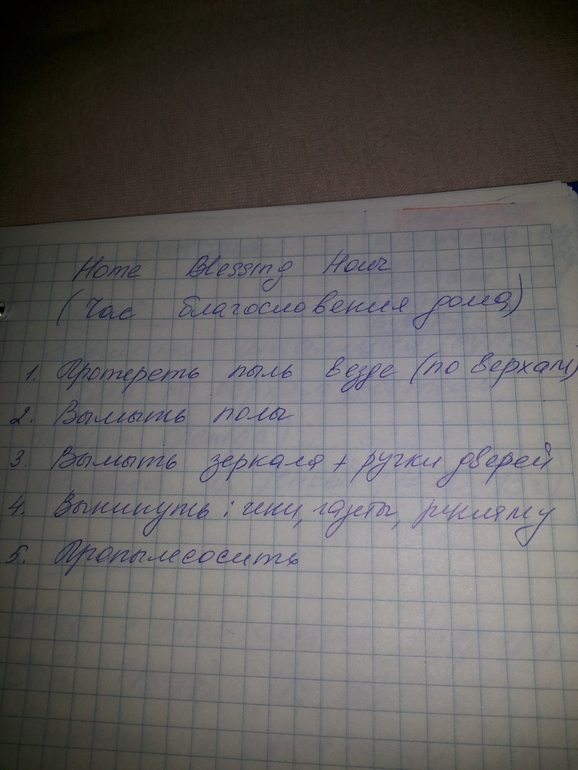 Home Blessing Hour
(Час благословения дома)
1. Протереть пыль везде (по верхам)
2. Вымыть полы
3. Вымыть зеркала + ручки дверей
4. Выкинуть: чеки, газеты, рекламу
5. Пропылесосить